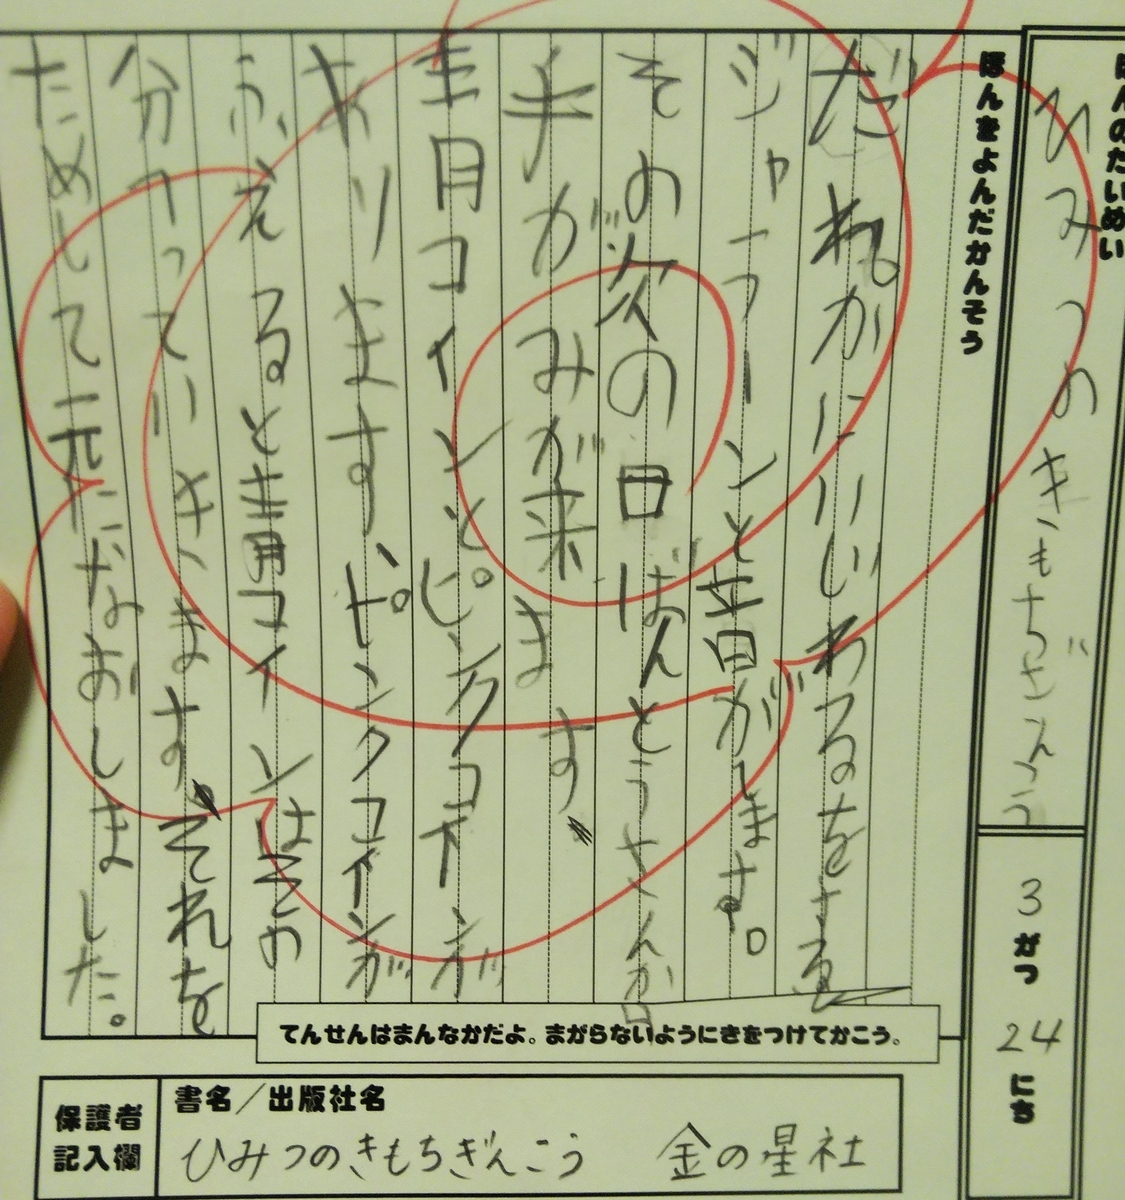 ほんのだいめい
ひみつのきもちぎんこう
3がつ24にち
ほんをよんだかんそう
だれかにいじわるなをすると
ジャラーンと音がします。
その次の日ばんとうさんから
手がみが来ます
青月コインとピンクコインが
あります。ピンクコインが
ふえると青月コインはその
分へっていきます。それを
ためして元になおしました。
てんせんはまんなかだよ。まがらないようにきをつけてかこう。
保護者記入欄
書名／出版社名
ひみつのきもちぎんこう 金の星社